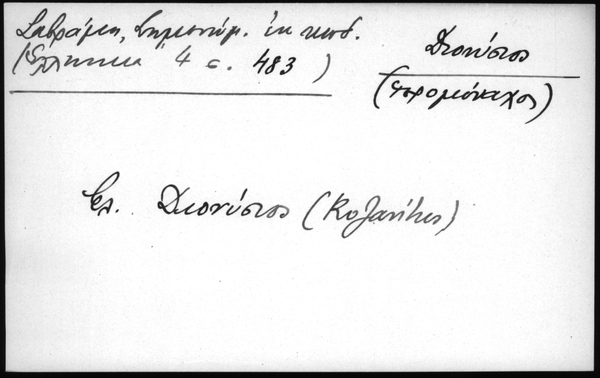 Σαβράμη, Σημειώμ. ἐκ κωδ.
(Ἑλληνικά 4 σ. 483)
Διονύσιος
(ἱερομόναχος)
βλ. Διονύσιος (Κοζανίτης)